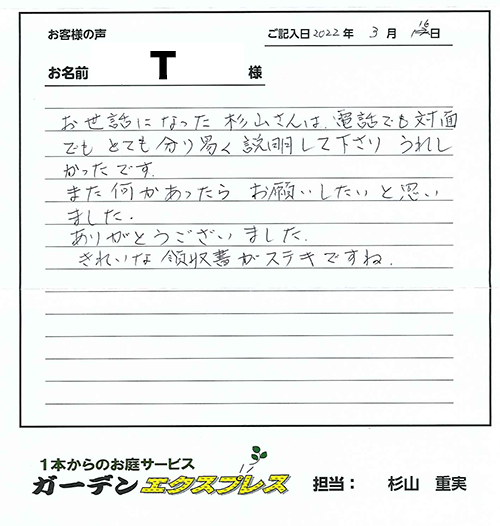 お客様の声
ご記入日 2022年 3月 16日
お名前 T 様
お世話になった杉山さんは、電話でも対面
でもとても分り易く説明して下さり うれし
かったです。
また何かあったら お願いしたいと思い
ました。
ありがとうございました。
きれいな領収書がステキですね。
1本からのお庭サービス
ガーデンエクスプレス
担当： 杉山 重実